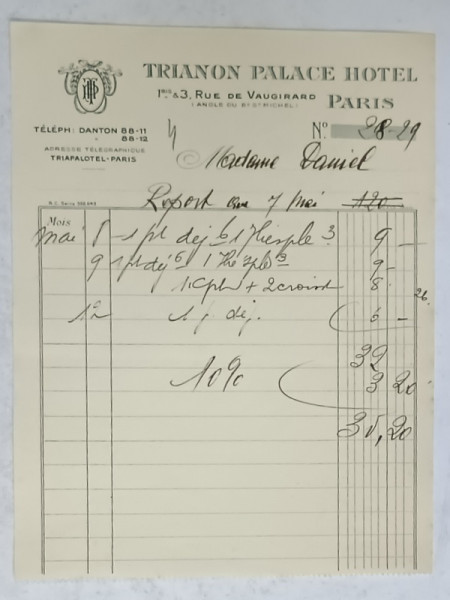 TRIANON PALACE HOTEL
1BIS & 3, RUE DE VAUGIRARD
(ANGLE DU BD ST MICHEL) PARIS
TÉLÉPH: DANTON 88-11
88-12
Nº 28-29
ADRESSE TÉLÉGRAPHIQUE
TRIAPALOTEL-PARIS
Madame Daniel
Report au 7 mai 120
Mois
mai 8 1 pt dej 6 1 3 9 —
9 1 pt dej 6 1 3 9 -
+ 2 croiss 8
26.
1 dej. 6 —
32
10% 3 20
35,20